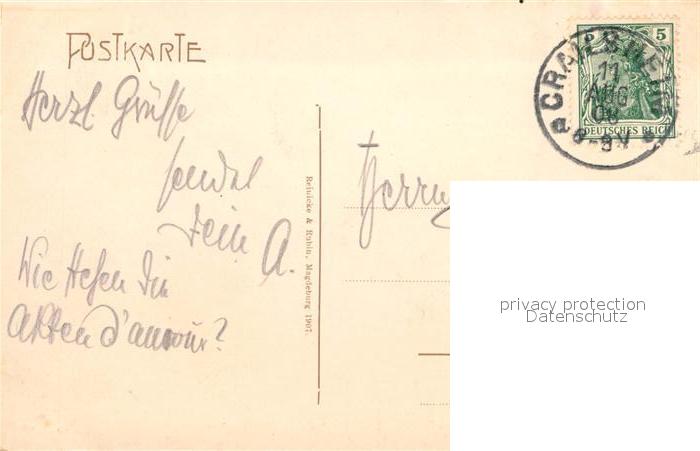 POSTKARTE
Herzl Grüsse
sendet
Dein A.
Wie stehen die
Akten d'amour?
Reinicke & Rubin, Magdeburg 1907.
Herrn
5
CRAILSHEIM
11
AUG
08
8-9V
DEUTSCHES REICH
privacy protection
Datenschutz